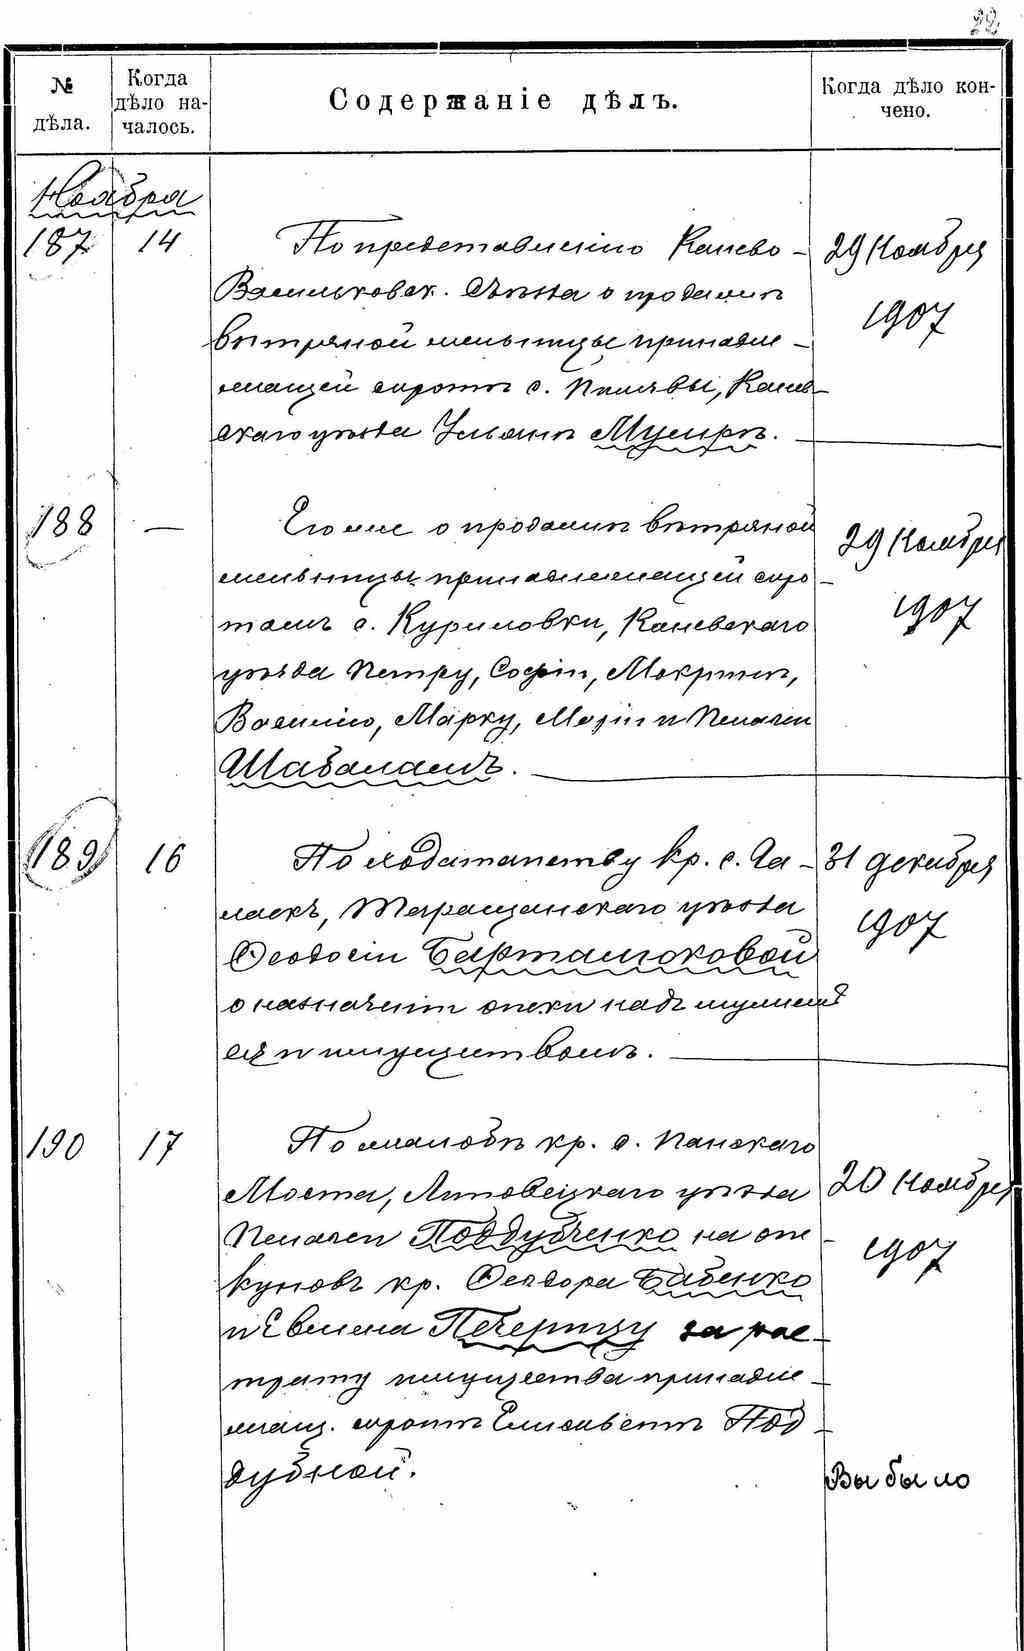 22.
№ дѣла.
Когда дѣло на-
чалось.
Содержаніе дѣлъ.
Когда дѣло кон-
чено.
Ноября
187 14 По представленію Канево-
Васильковск. Съѣзда о продажѣ
вѣтряной мельницы принадле-
жащей сиротѣ с. Пилявы, Канев-
скаго уѣзда Ульянѣ
29 Ноября
1907
188 — Его же о продажѣ вѣтряной
мельницы, принадлежащей сиро-
тамъ с. Куриловки, Каневскаго
уѣзда Петру, Софіи, Мокринѣ,
Василію, Марку, Маріи и Пелагеи
Шабаламъ.
29 Ноября
1907
189 16 По ходатайству кр. с.
Таращанскаго уѣзда
Ѳеодосіи Барталюковой
о назначеніи опеки надъ мужемъ
ея и имуществомъ.
31 декабря
1907
190 17 По жалобѣ кр. с. Панскаго
Моста, Липовецкаго уѣзда
Пелагеи Поддубченко на опе-
куновъ кр. Ѳеодора Бабенко
и Евмена Печерицу за рас-
трату имущества принадле-
жащ. сиротѣ Елисаветѣ Под-
дубной.
20 Ноября
1907
Выбыло